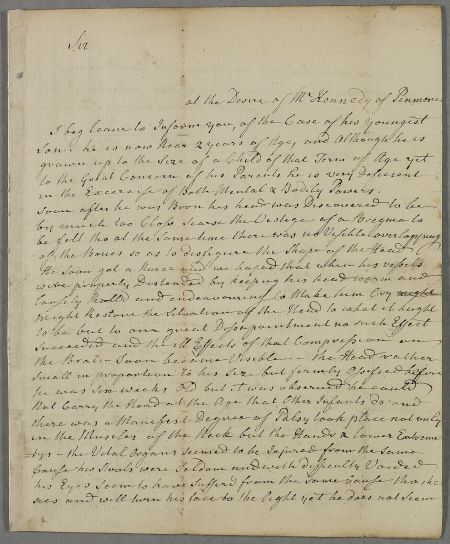 Sir
at the Desire of Mr Kennedy of Penmore
I beg leave to Inform you, of the Case of his youngest
Son. he is now Near 2 years of Age, and Although he is
grown up to the Size of a Child of that Term of Age yet
to the Great Concern of his Parents he is very Deficient
in the Excercise of Both Mental & Bodily Powers.
Soon after he was Born his head was Discovered to be
by much too Closs Scarse the Vestige of a Bregma to
be felt tho at the Same time there was no Visible overlapping
of the Bones so as to disfigure the Shape of the Head
He Soon got a Nurse and we hoped that when his vessels
were properly Distended by keeping his head warm and
Loosely and endeavouring to Make him Cry might
might Restore the Situation of the Head to what it ought
to be but to our great Dissapointment no such Effect
Succeeded and the ill Effects of that Compression on
the Brain Soon became Visible - the Head rather
Small in proportion to his Size but firmly Ossified before
he was Six weeks old but it was observed he could
Not Carry the Head at the Age that Other Infants do and
there was a Manifest degree of Palsy took place not only
in the Muscles of the Neck but the Hands & Lower Extreme
tys - the Vital Organs Seemed to be Injured from the Same
Cause his Stools were Seldom and with difficulty Voided
his Eyes Seem to have Sufferd from the Same Cause tho he
sees and will turn his face to the light yet he does not Seem